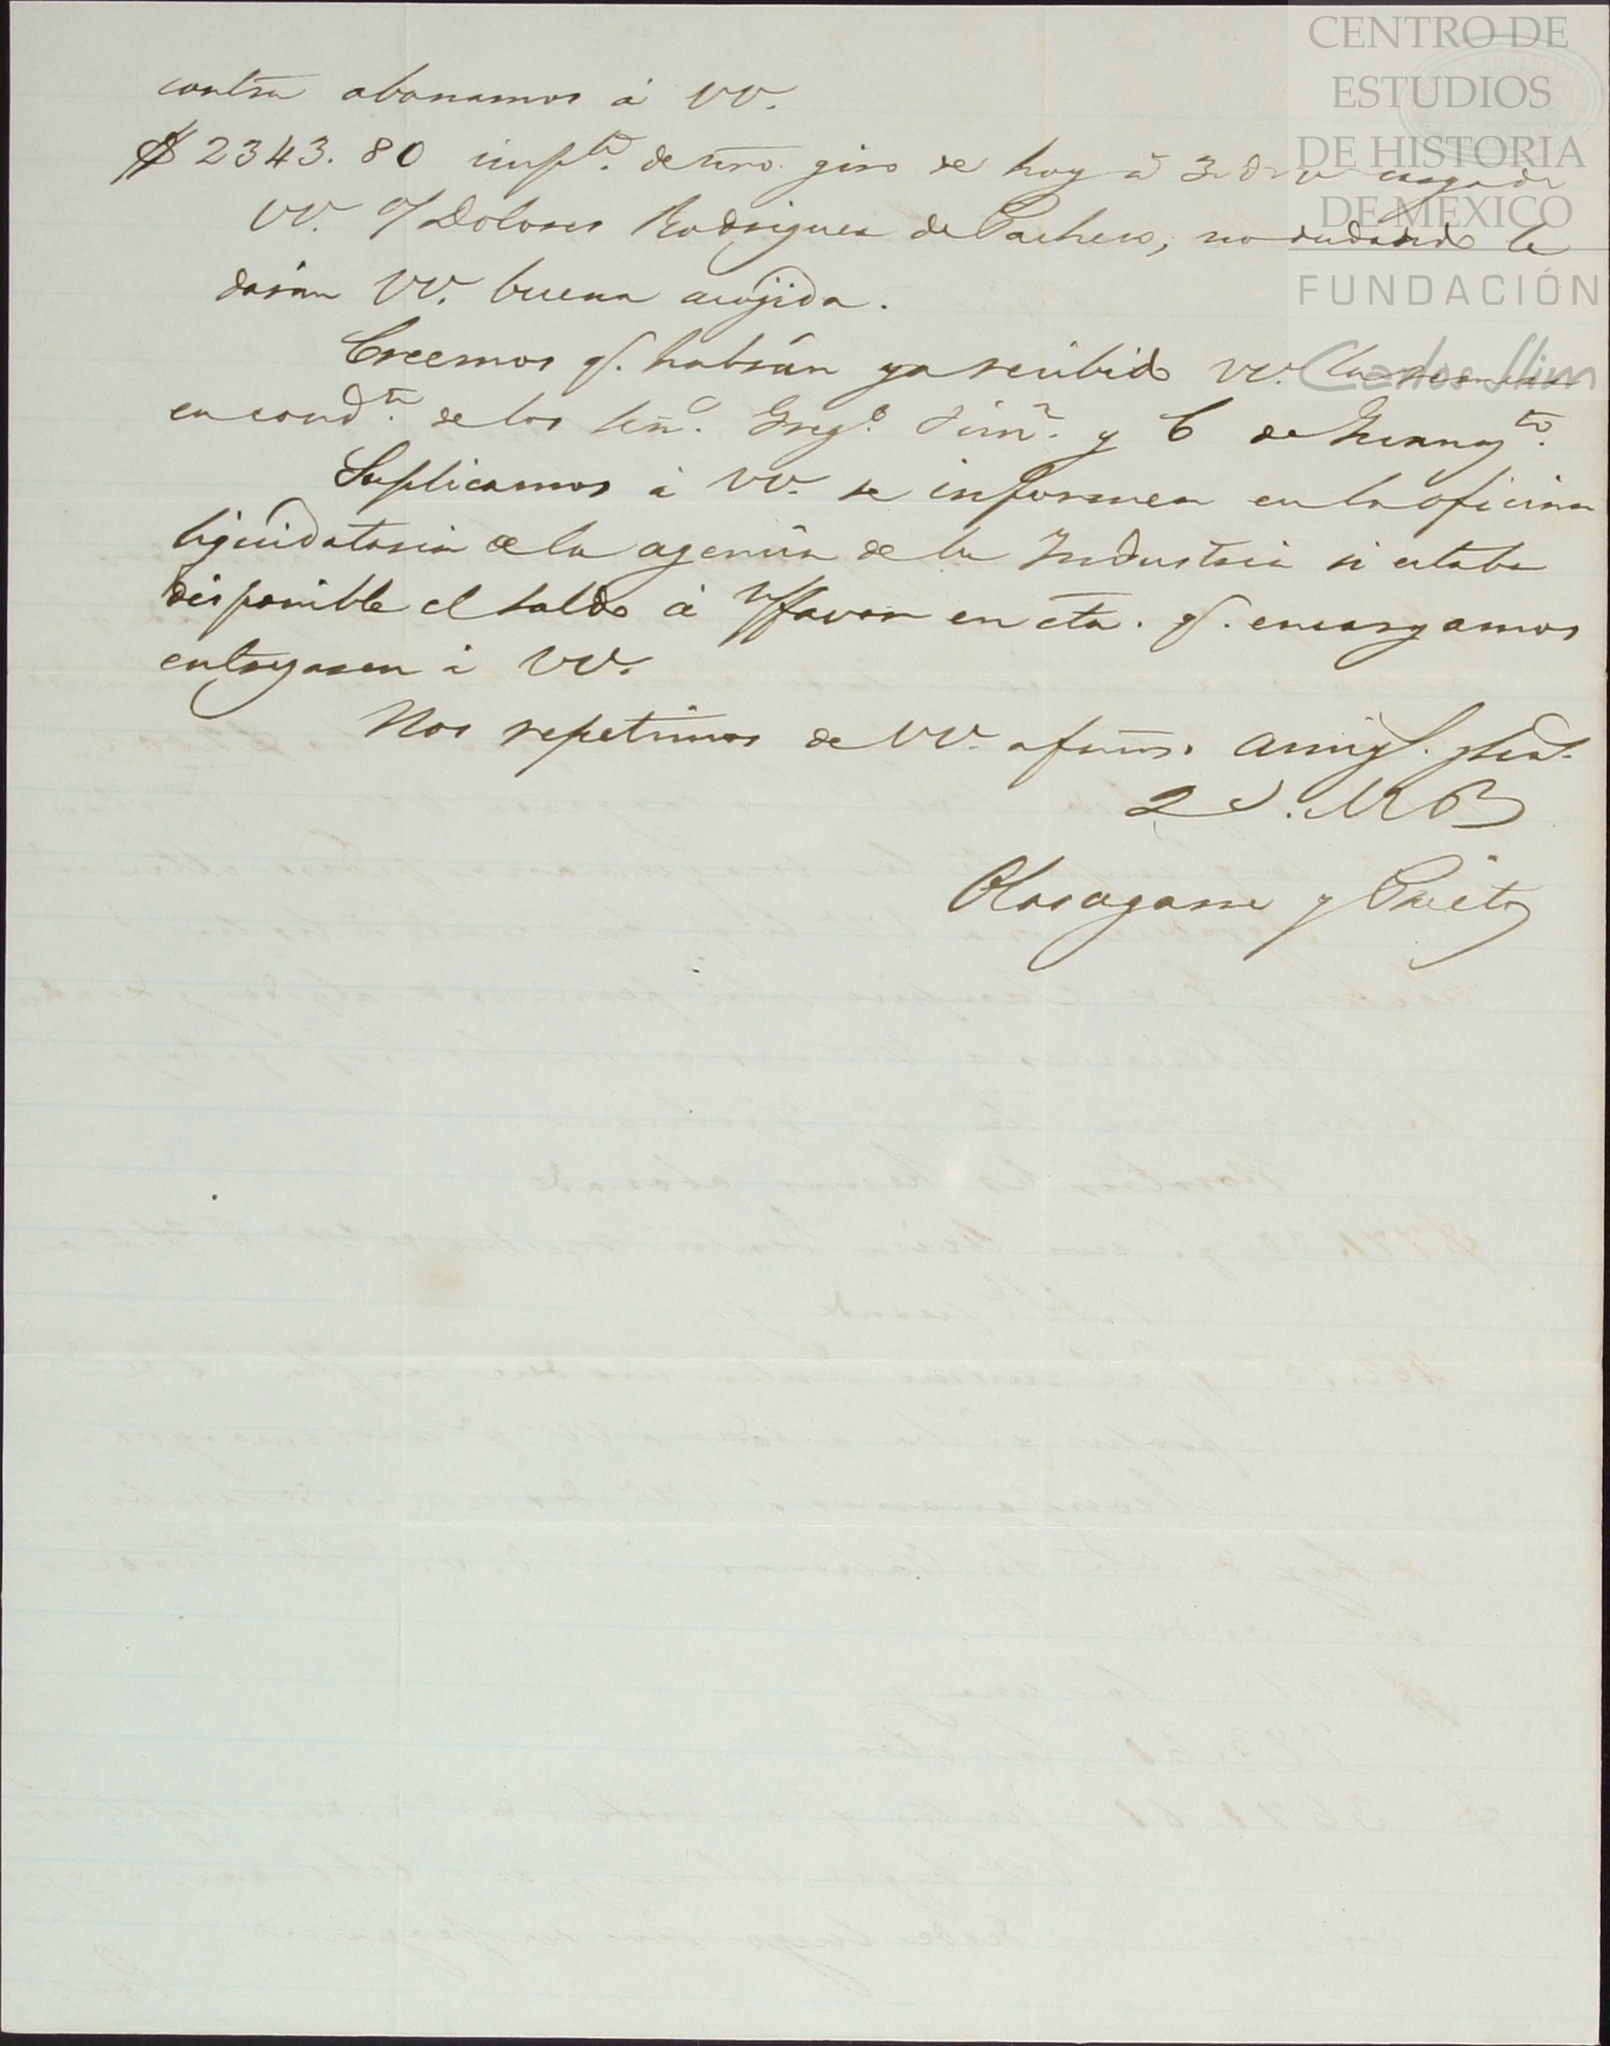 CENTRO DE
ESTUDIOS
DE HISTORIA
DE MÉXICO
FUNDACIÓN
Carlos Slim
contra abonamos á VV.
$ 2343. 80 impte. de nro. giro de hoy á 3 d. v. cargo de
VV. o/ Dolores Rodriguez de Pacheco, no dudando le
darán VV. buena acojida.
Creemos q. habrán ya recibido VV. las
en condta. de los Sres. Grego. Jimz. y C de Guanajto.
Suplicamos á VV. se informen en la oficina
liquidataria de la agencia de la Industria si estaba
disponible el saldo á n/favor en cta. q. encargamos
entregasen á VV.
Nos repetimos de VV. afmos. amigs. y
Q. B. S. M.
Olasagarre y Prieto